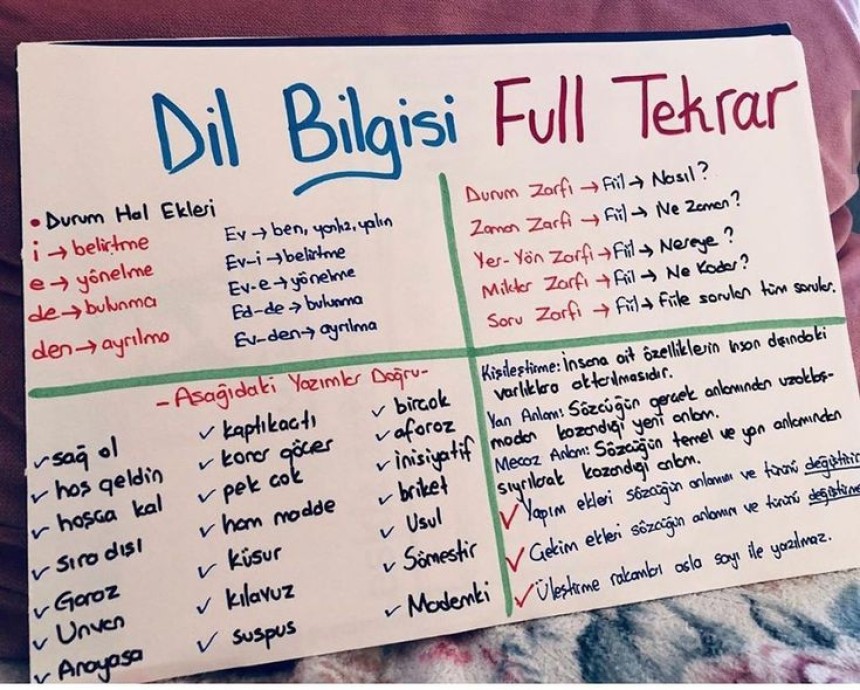 Dil Bilgisi Full Tekrar
• Durum Hal Ekleri
i → belirtme
e → yönelme
de → bulunma
den → ayrılma
Ev → ben, yalnız, yalın
Ev-i → belirtme
Ev-e → yönelme
Ed-de → bulunma
Ev-den → ayrılma
Durum Zarfı → Fiil → Nasıl?
Zaman Zarfı → Fiil → Ne Zaman?
Yer-Yön Zarfı → Fiil → Nereye?
Miktar Zarfı → Fiil → Ne Kadar?
Soru Zarfı → Fiil → Fiile sorulan tüm sorular.
-Aşağıdaki Yazımlar Doğru-
✓ sağ ol
✓ hoş geldin
✓ hoşça kal
✓ sıra dışı
✓ Garaz
✓ Unvan
✓ Anayasa
✓ kaptıkaçtı
✓ konar göçer
✓ pek çok
✓ ham madde
✓ küsur
✓ kılavuz
✓ suspus
✓ birçok
✓ aforoz
✓ inisiyatif
✓ briket
✓ Usul
✓ Sömestir
✓ Mademki
Kişileştirme: İnsana ait özelliklerin insan dışındaki
varlıklara aktarılmasıdır.
Yan Anlam: Sözcüğün gerçek anlamından uzaklaş-
madan kazandığı yeni anlam.
Mecaz Anlam: Sözcüğün temel ve yan anlamından
sıyrılarak kazandığı anlam.
✓ Yapım ekleri sözcüğün anlamını ve türünü değiştirir
✓ Çekim ekleri sözcüğün anlamını ve türünü değiştirme
✓ Üleştirme rakamları asla sayı ile yazılmaz.